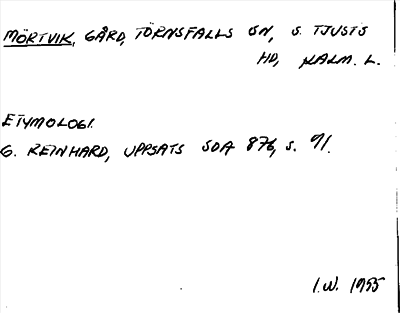 MÖRTVIK, GÅRD, TÖRNSFALLS SN, S. TJUSTS
HD, KALM. L.
ETYMOLOGI.
G. REINHARD, UPPSATS SOA 876, S. 71.
I.W. 1955